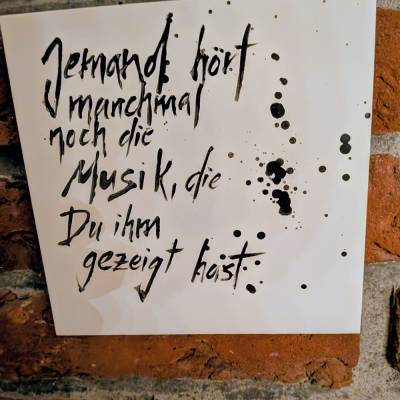 Jemand hört
manchmal
noch die
Musik, die
Du ihm
gezeigt hast